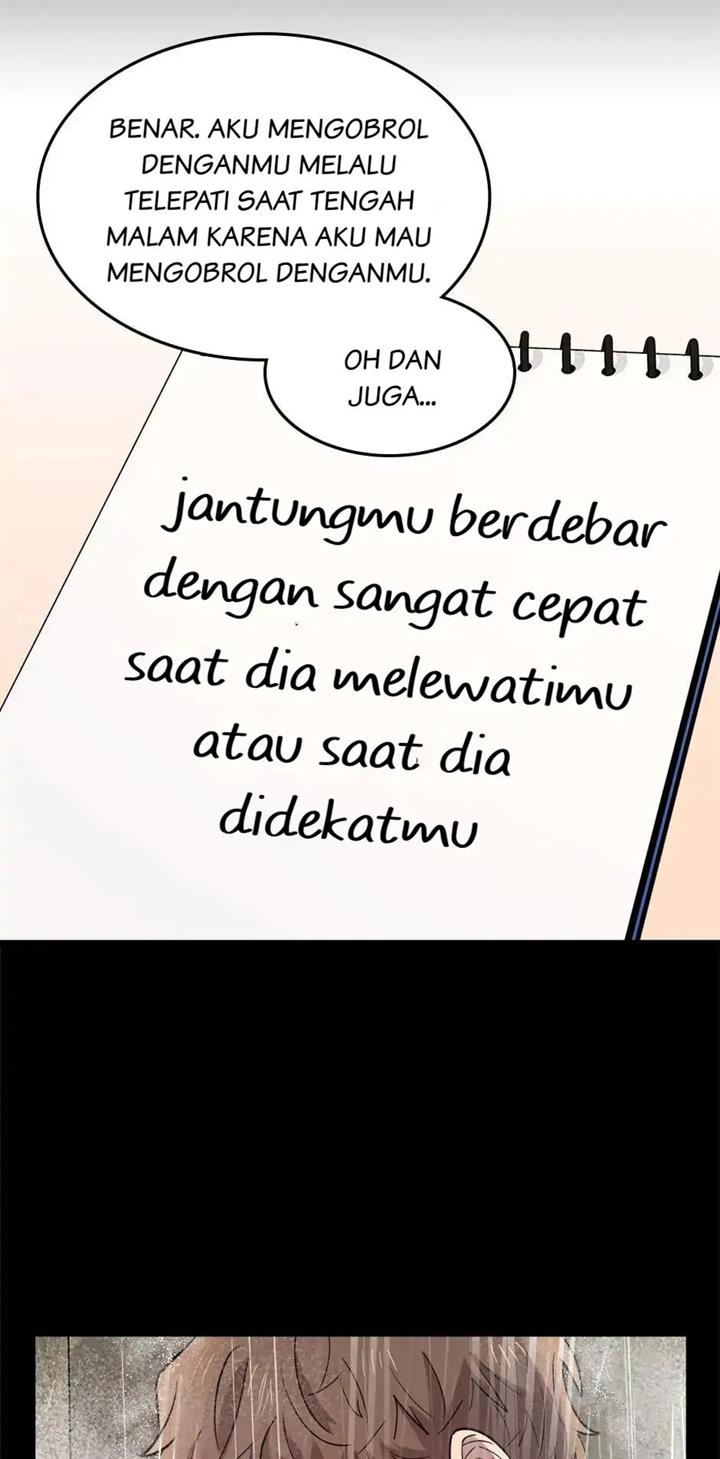 BENAR. AKU MENGOBROL
DENGANMU MELALU
TELEPATI SAAT TENGAH
MALAM KARENA AKU MAU
MENGOBROL DENGANMU.
OH DAN
JUGA...
jantungmu berdebar
dengan sangat cepat
saat dia melewatimu
atau saat dia
didekatmu